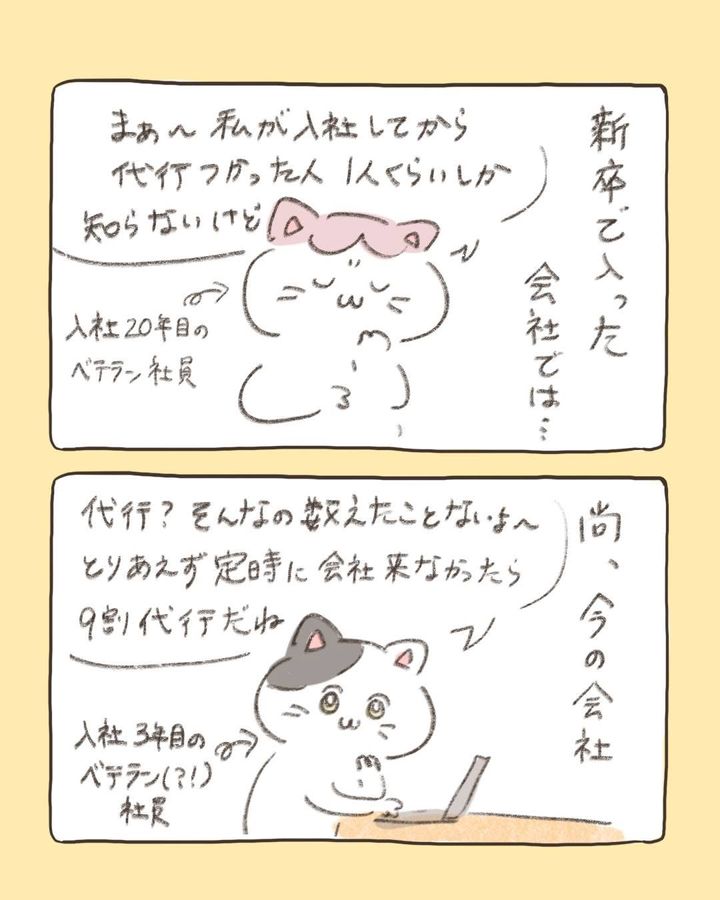 新卒で入った
会社では…
まぁ〜 私が入社してから
代行つかった人 1人くらいしか
知らないけど
入社20年目の
ベテラン社員
尚、今の会社
代行？そんなの数えたことないよ〜
とりあえず定時に会社来なかったら
9割代行だね
入社3年目の
ベテラン(?!)
社員